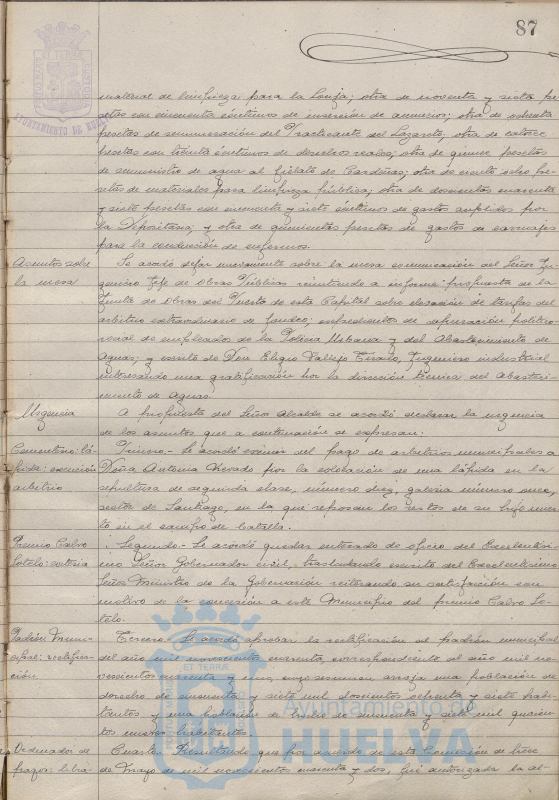 87
AYUNTAMIENTO DE HUELVA
material de limpieza para la Lonja; otra de noventa y siete pe-
setas con cincuenta céntimos de inserción de anuncios; otra de ochenta
pesetas de remuneración del Practicante del Lazareto; otra de catorce
pesetas con treinta céntimos de derechos reales; otra de quince pesetas
de suministro de agua al fielato de Cardeñas; otra de ciento ocho pe-
setas de materiales para limpieza pública; otra de doscientas cuarenta
y siete pesetas con cincuenta y siete céntimos de gastos suplidos por
la Depositaría; y otra de quinientas pesetas de gastos de carruajes
para la conducción de enfermos.
Asuntos sobre
la mesa
Se acordó dejar nuevamente sobre la mesa comunicación del Señor In-
geniero Jefe de Obras Públicas remitiendo a informe propuesta de la
Junta de Obras del Puerto de esta Capital sobre elevación de tarifas del
arbitrio extraordinario de fondeo; expedientes de depuración político
social de empleados de la Policía Urbana y del Abastecimiento de
Aguas; y escrito de Don Eligio Vallejo Tirado, Ingeniero industrial
interesando una gratificación por la dirección técnica del Abasteci-
miento de Aguas.
Urgencia
A propuesta del Señor Alcalde se acordó declarar la urgencia
de los asuntos que a continuación se expresan:
Cementerio: lá-
pida: exención
arbitrio
Primero.- Se acordó eximir del pago de arbitrios municipales a
Doña Antonia Nevado por la colocación de una lápida en la
sepultura de segunda clase, número diez, galería número once,
sector de Santiago, en la que reposan los restos de su hijo muer-
to en el campo de batalla.
Premio Calvo
Sotelo:
Segundo.- Se acordó quedar enterado de oficio del Excelentísi-
mo Señor Gobernador civil, trasladando escrito del Excelentísimo
Señor Ministro de la Gobernación reiterando su satisfacción con
motivo de la concesión a este Municipio del premio Calvo So-
telo.
Padrón Muni-
cipal: rectifica-
ción
Tercero.- Se acordó aprobar la rectificación al padrón municipal
del año mil novecientos cuarenta, correspondiente al año mil no-
vecientos cuarenta y uno, cuyo resumen arroja una población de
derecho de cincuenta y siete mil doscientos setenta y siete habi-
tantes y una población de hecho de cincuenta y siete mil quinien-
tos nueve habitantes.
Ordenador de
pagos: libra-
Cuarto.- Resultando que por acuerdo de esta Comisión de trece
de Mayo de mil novecientos cuarenta y dos, fué autorizada la al-
Ayuntamiento de
HUELVA